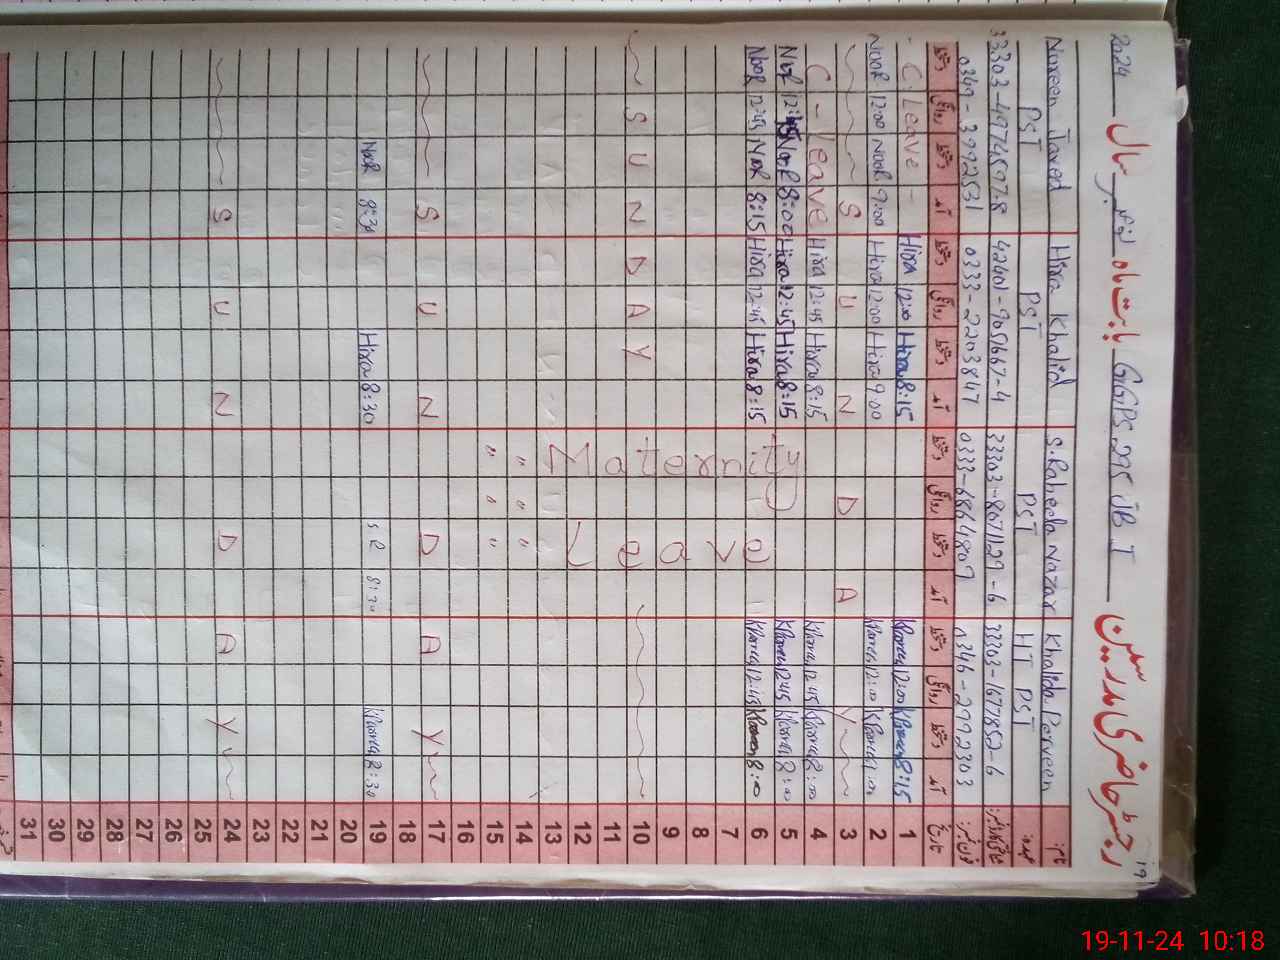 رجسٹر حاضری مدرسین GGPS 295 JB I بابت ماه نومبر سال 2024
19
نام: Khalida Parveen S. Raheela Nazar Hira Khalid Noreen Javed
عہدہ: HT PST PST PST PST
33303-1677852-6 33303-8071129-6 42401-9051667-4 33303-4974597-8
0346-2992303 0333-6864809 0333-2203847
تاریخ آمد دستخط روانگی دستخط آمد دستخط روانگی دستخط آمد دستخط روانگی دستخط آمد دستخط روانگی دستخط
1 8:15 12:00 8:15 Hira 12:00 Hira C. Leave
2 12:00 9:00 Hira 12:00 Hira 9:00 NooR 12:00 NooR
3 Y A D N U S
4 8:00 12:45 8:15 Hira 12:45 Hira C-Leave
5 8:00 12:45 8:15 Hira 12:45 Hira 8:00 NooR 12:45 NooR
6 8:00 12:45 8:15 Hira 12:45 Hira 8:15 NooR 12:45 NooR
Maternity Leave
7
8
9
10 S U N D A Y
11
12
13
14 " " "
15 " " "
16
17 Y A D N U S
18
19 8:30 8:30 SR 8:30 Hira 8:30 NooR
20
21
22
23
24 Y A D N U S
25
26
27
28
29
30
31
19-11-24 10:18